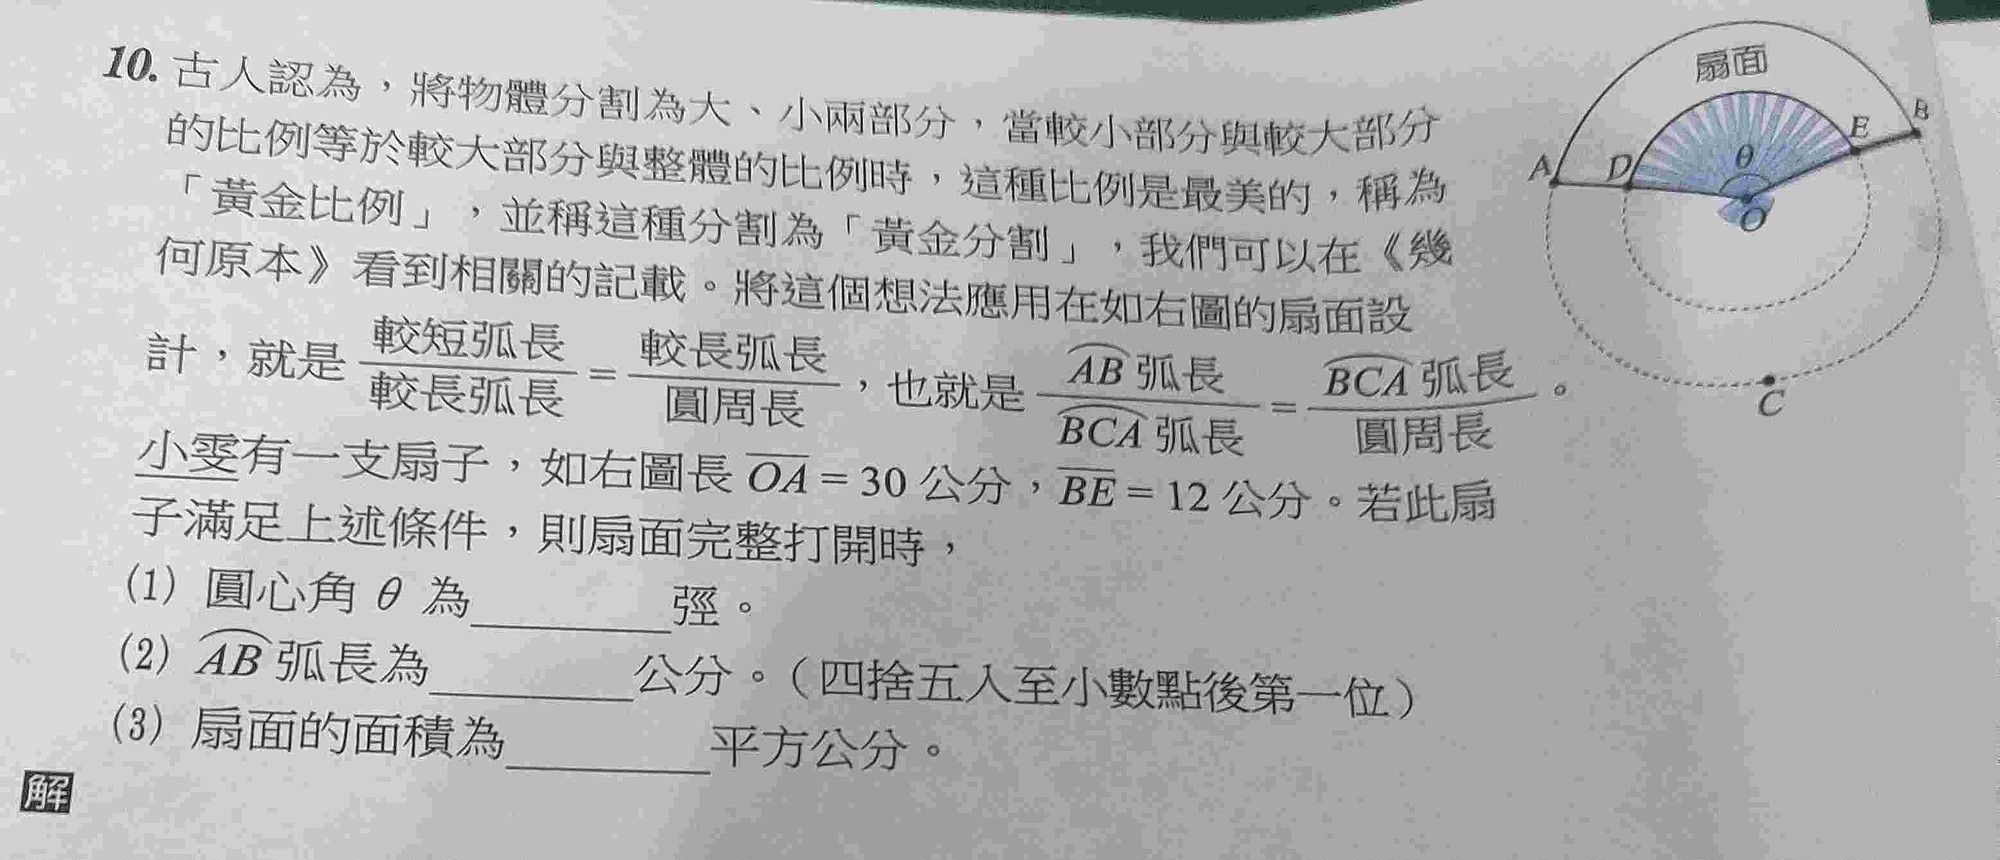 10. 古人認為，將物體分割為大、小兩部分，當較小部分與較大部分
的比例等於較大部分與整體的比例時，這種比例是最美的，稱為
「黃金比例」，並稱這種分割為「黃金分割」，我們可以在《幾
何原本》看到相關的記載。將這個想法應用在如右圖的扇面設
計，就是 較短弧長/較長弧長 = 較長弧長/圓周長，也就是 AB 弧長/BCA 弧長 = BCA 弧長/圓周長。
小雯有一支扇子，如右圖長 OA = 30 公分，BE = 12 公分。若此扇
子滿足上述條件，則扇面完整打開時，
(1) 圓心角 θ 為________弳。
(2) AB 弧長為________公分。（四捨五入至小數點後第一位）
(3) 扇面的面積為________平方公分。
解
扇面
A
D
E
B
θ
O
C